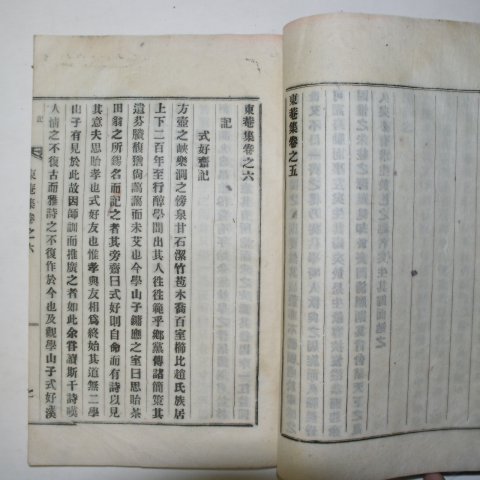 東菴集卷之五
東菴集卷之六
記
式好齋記
方壺之峽樂澗之傍泉甘石潔竹苞木喬百室櫛比趙氏族居
上下二百年至行醇學間出其人往往範乎鄉黨傳諸簡策其
遺芬賸馥猶尙藹藹而未艾也今學山子鏞應之室曰思貽茶
田翁之所錫名而記之者其旁齋曰式好則自命而有詩以見
其意夫思貽孝也式好友也惟孝與友相爲終始其道無二學
山子有見於此故因師訓而推廣之者如此余嘗讀斯干詩嘆
人情之不復古而雅詩之不復作於今也及觀學山子式好溪
記
東菴集卷之六